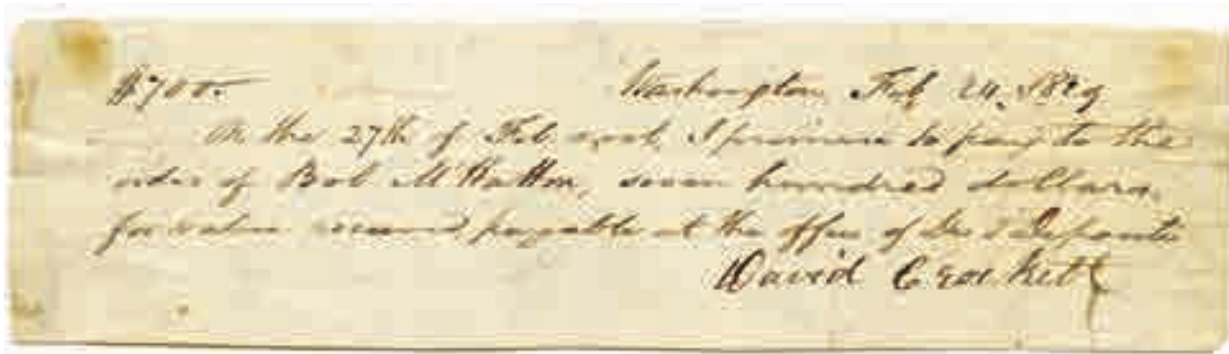 $700. Washington, Feb 24, 1829
On the 27th of Feb next, I promise to pay to the
order of Bob M Hatton, seven hundred dollars,
for value received payable at the office of & Deposite
David Crockett